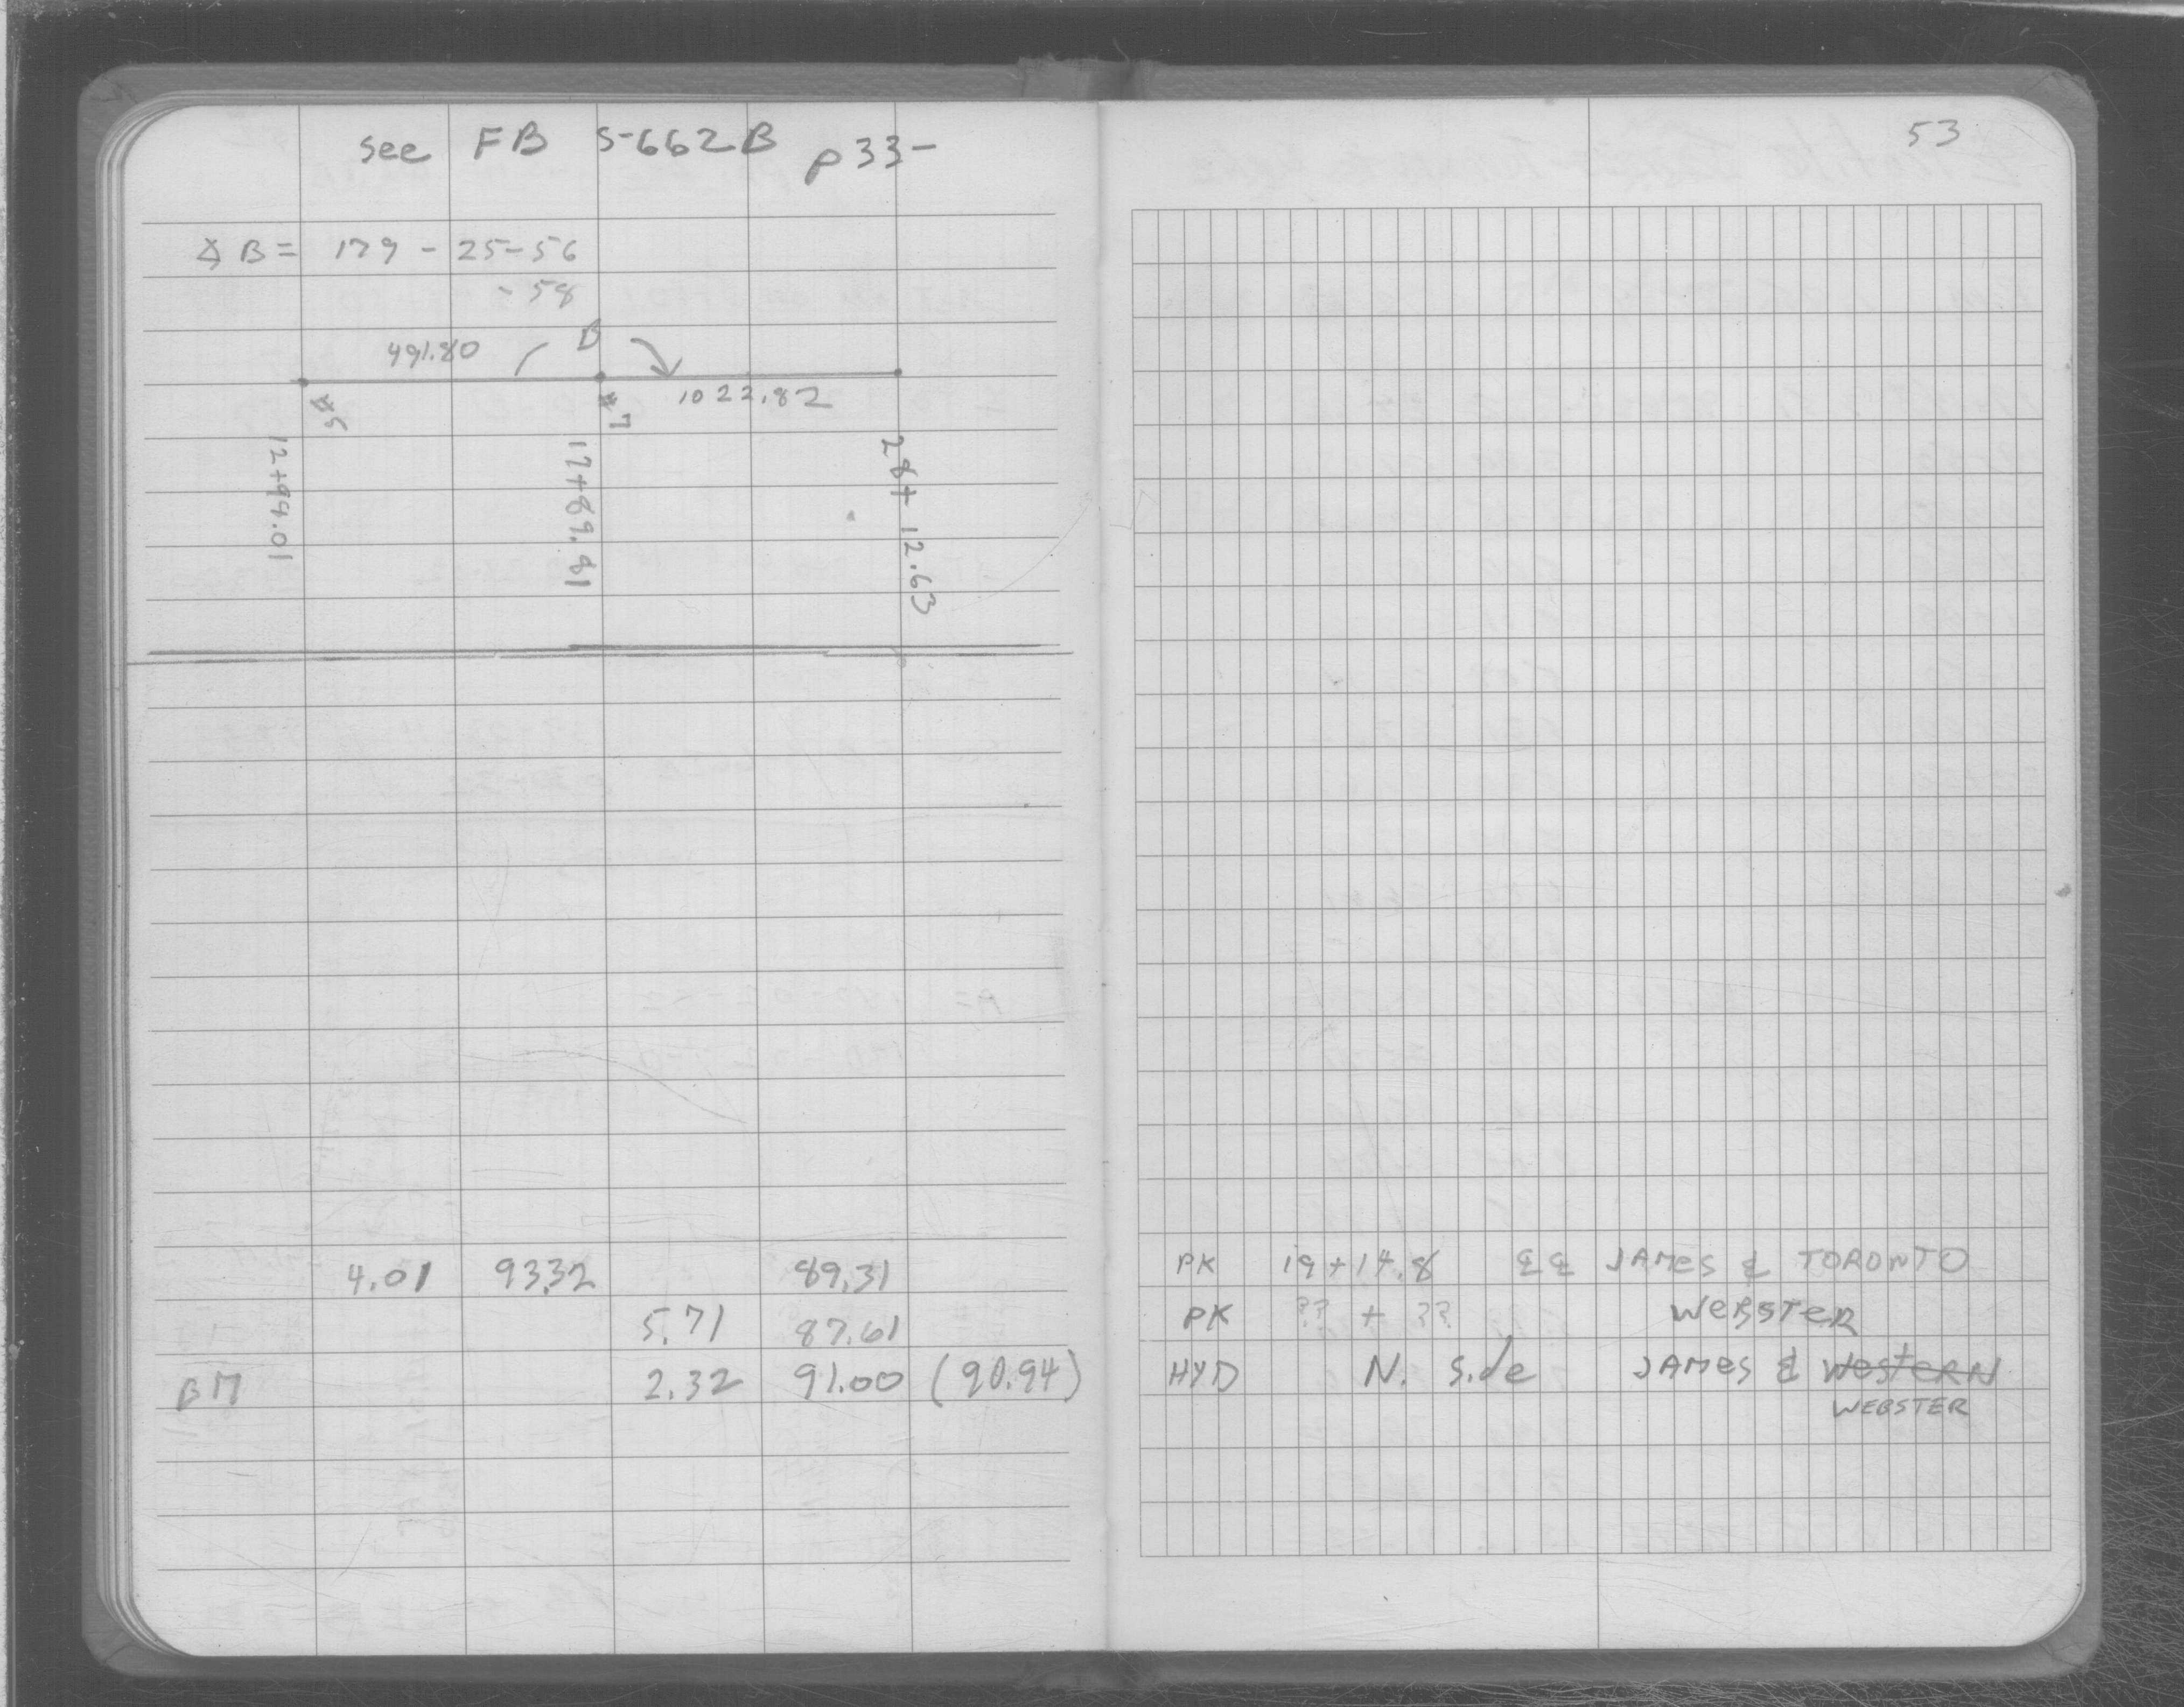 see FB S-662B p33-
53
∡ B = 179 - 25 - 56
- 58
491.80
B
1022.82
#5
#7
12+99.01
17+89.81
28+12.63
4.01 93.32 89.31 PK 19+14.8 ℄℄ JAMES & TORONTO
5.71 87.61 PK ?? + ?? WEBSTER
BM 2.32 91.00 (90.94) HYD N. Side JAMES & WESTERN
WEBSTER